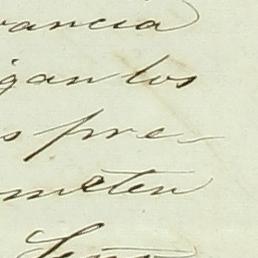 rancia
igan los
s pre-
meten